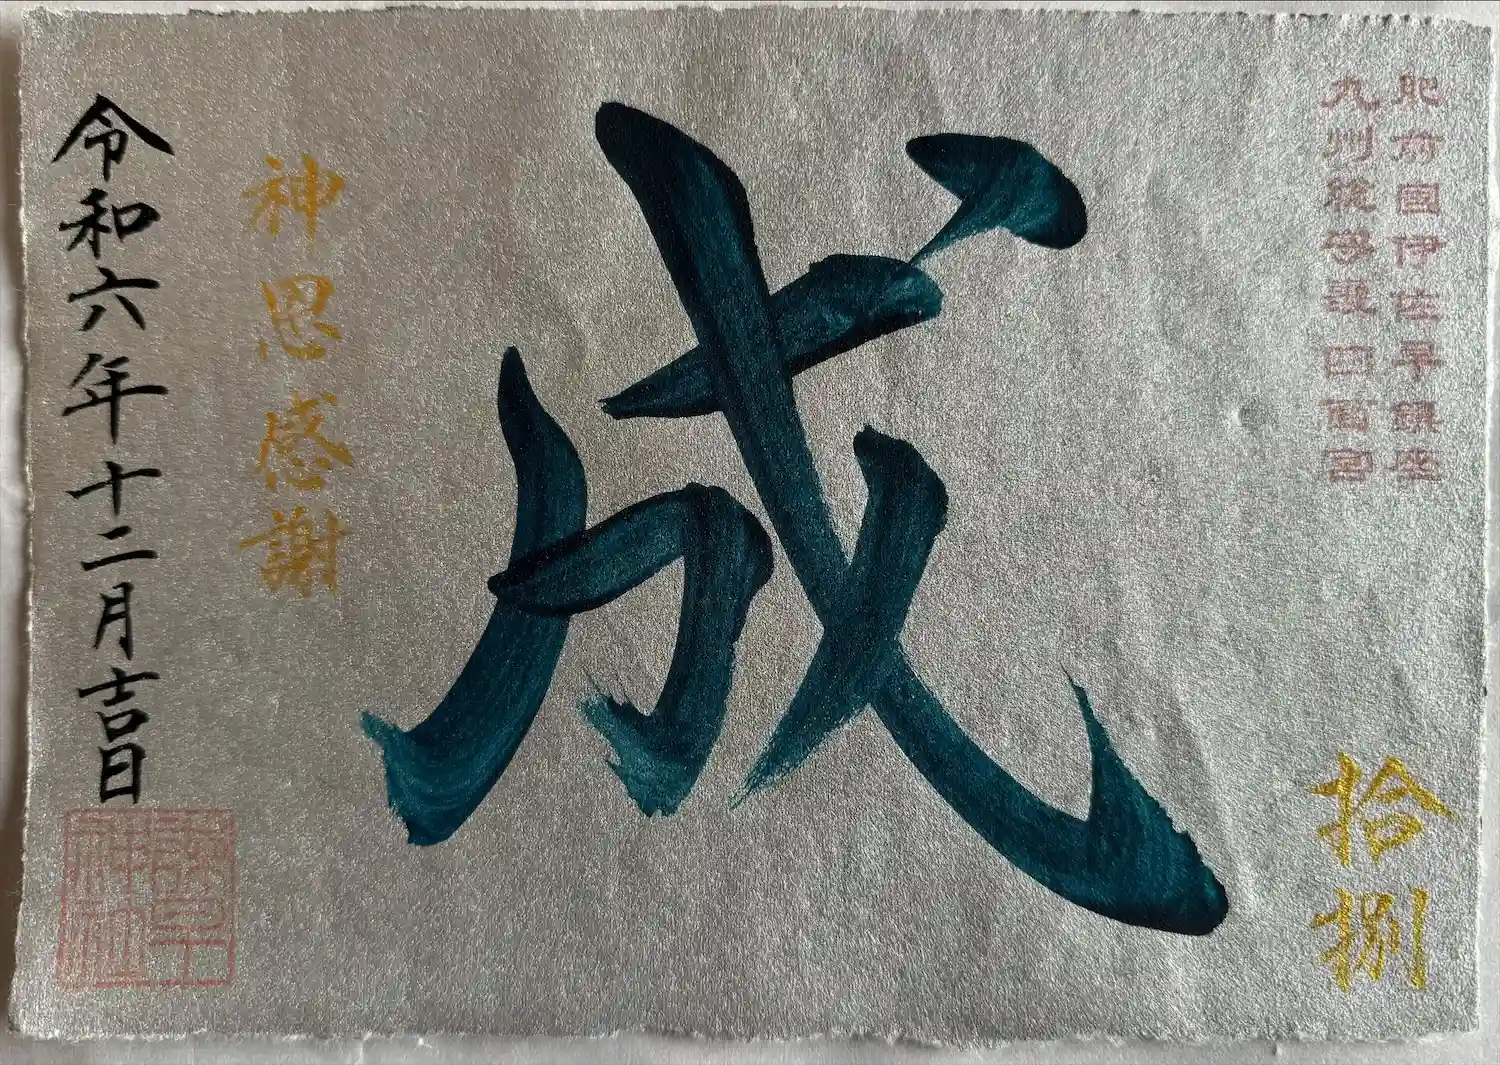 肥前國伊佐早鎮座
九州総守護四面宮
拾捌
成
神恩感謝
令和六年十二月吉日
諫早神社